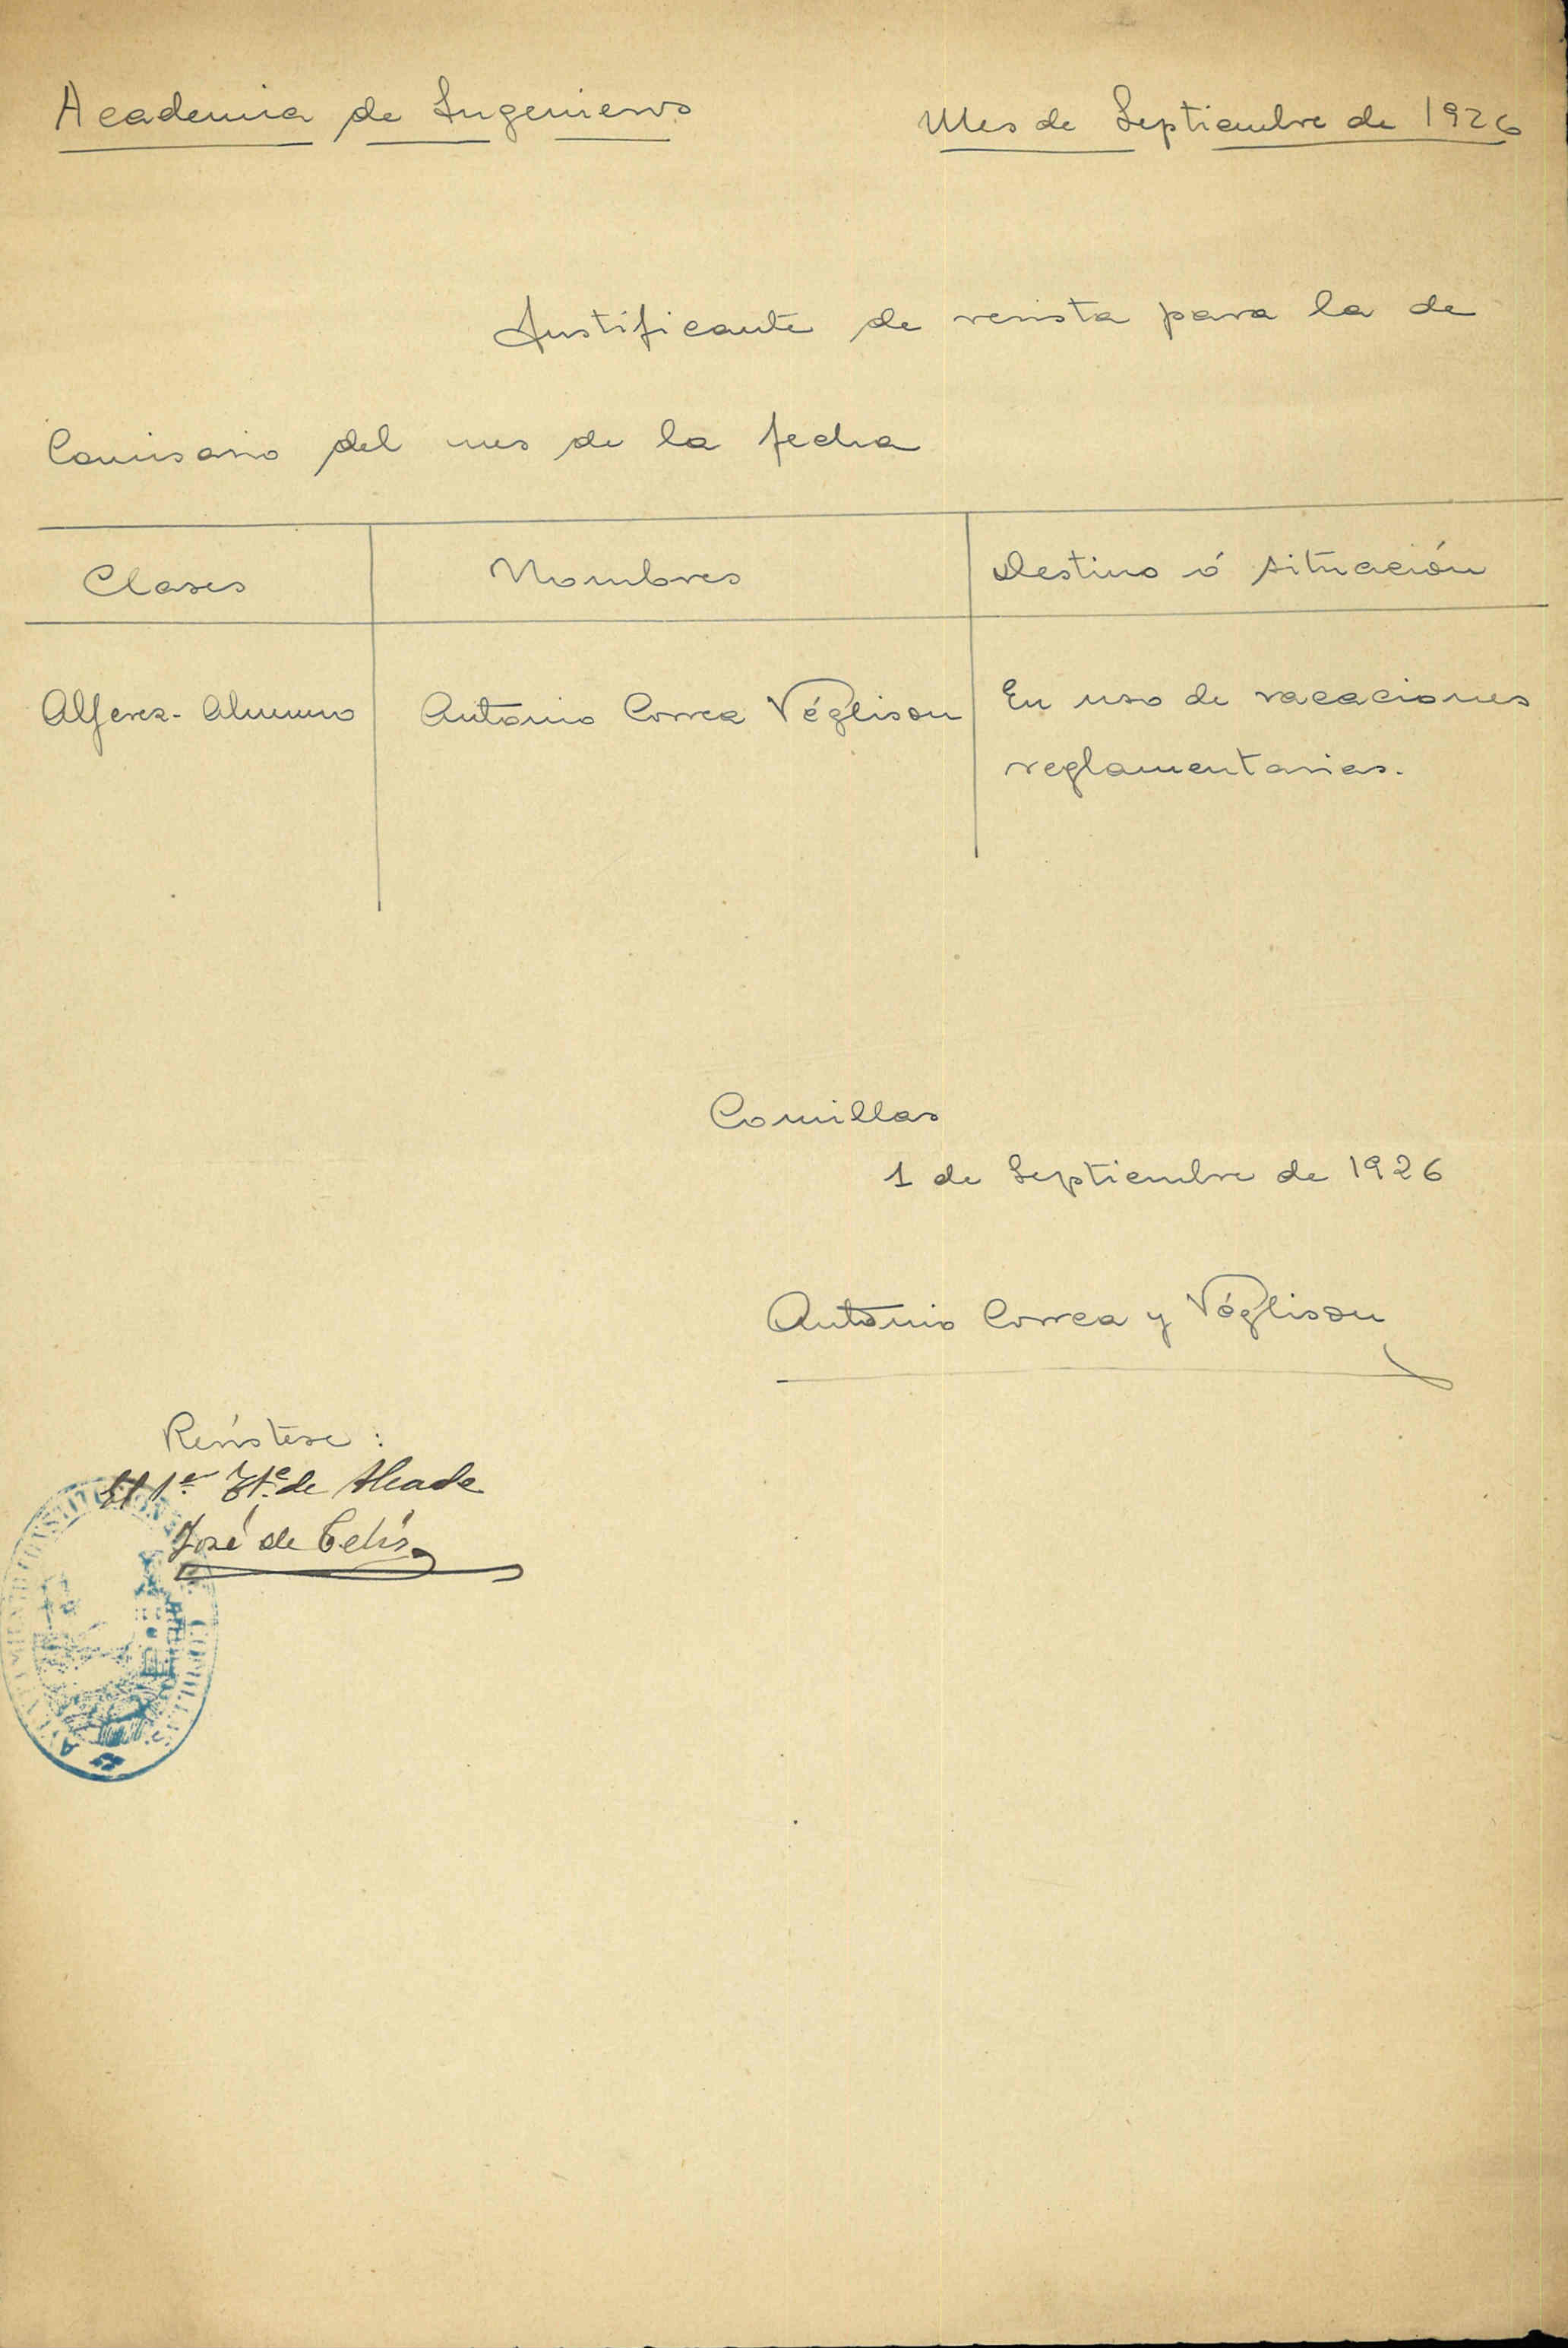 Academia de Ingenieros
Mes de Septiembre de 1926
Justificante de revista para la de
Comisario del mes de la fecha
Clases
Nombres
Destino ó situación
Alferez-Alumno
Antonio Correa Véglison
En uso de vacaciones
reglamentarias.
Comillas
1 de Septiembre de 1926
Antonio Correa y Véglison
Revístese:
El 1er Tte. de Alcade
José de Celis
AYUNTAMIENTO CONSTITUCIONAL COMILLAS